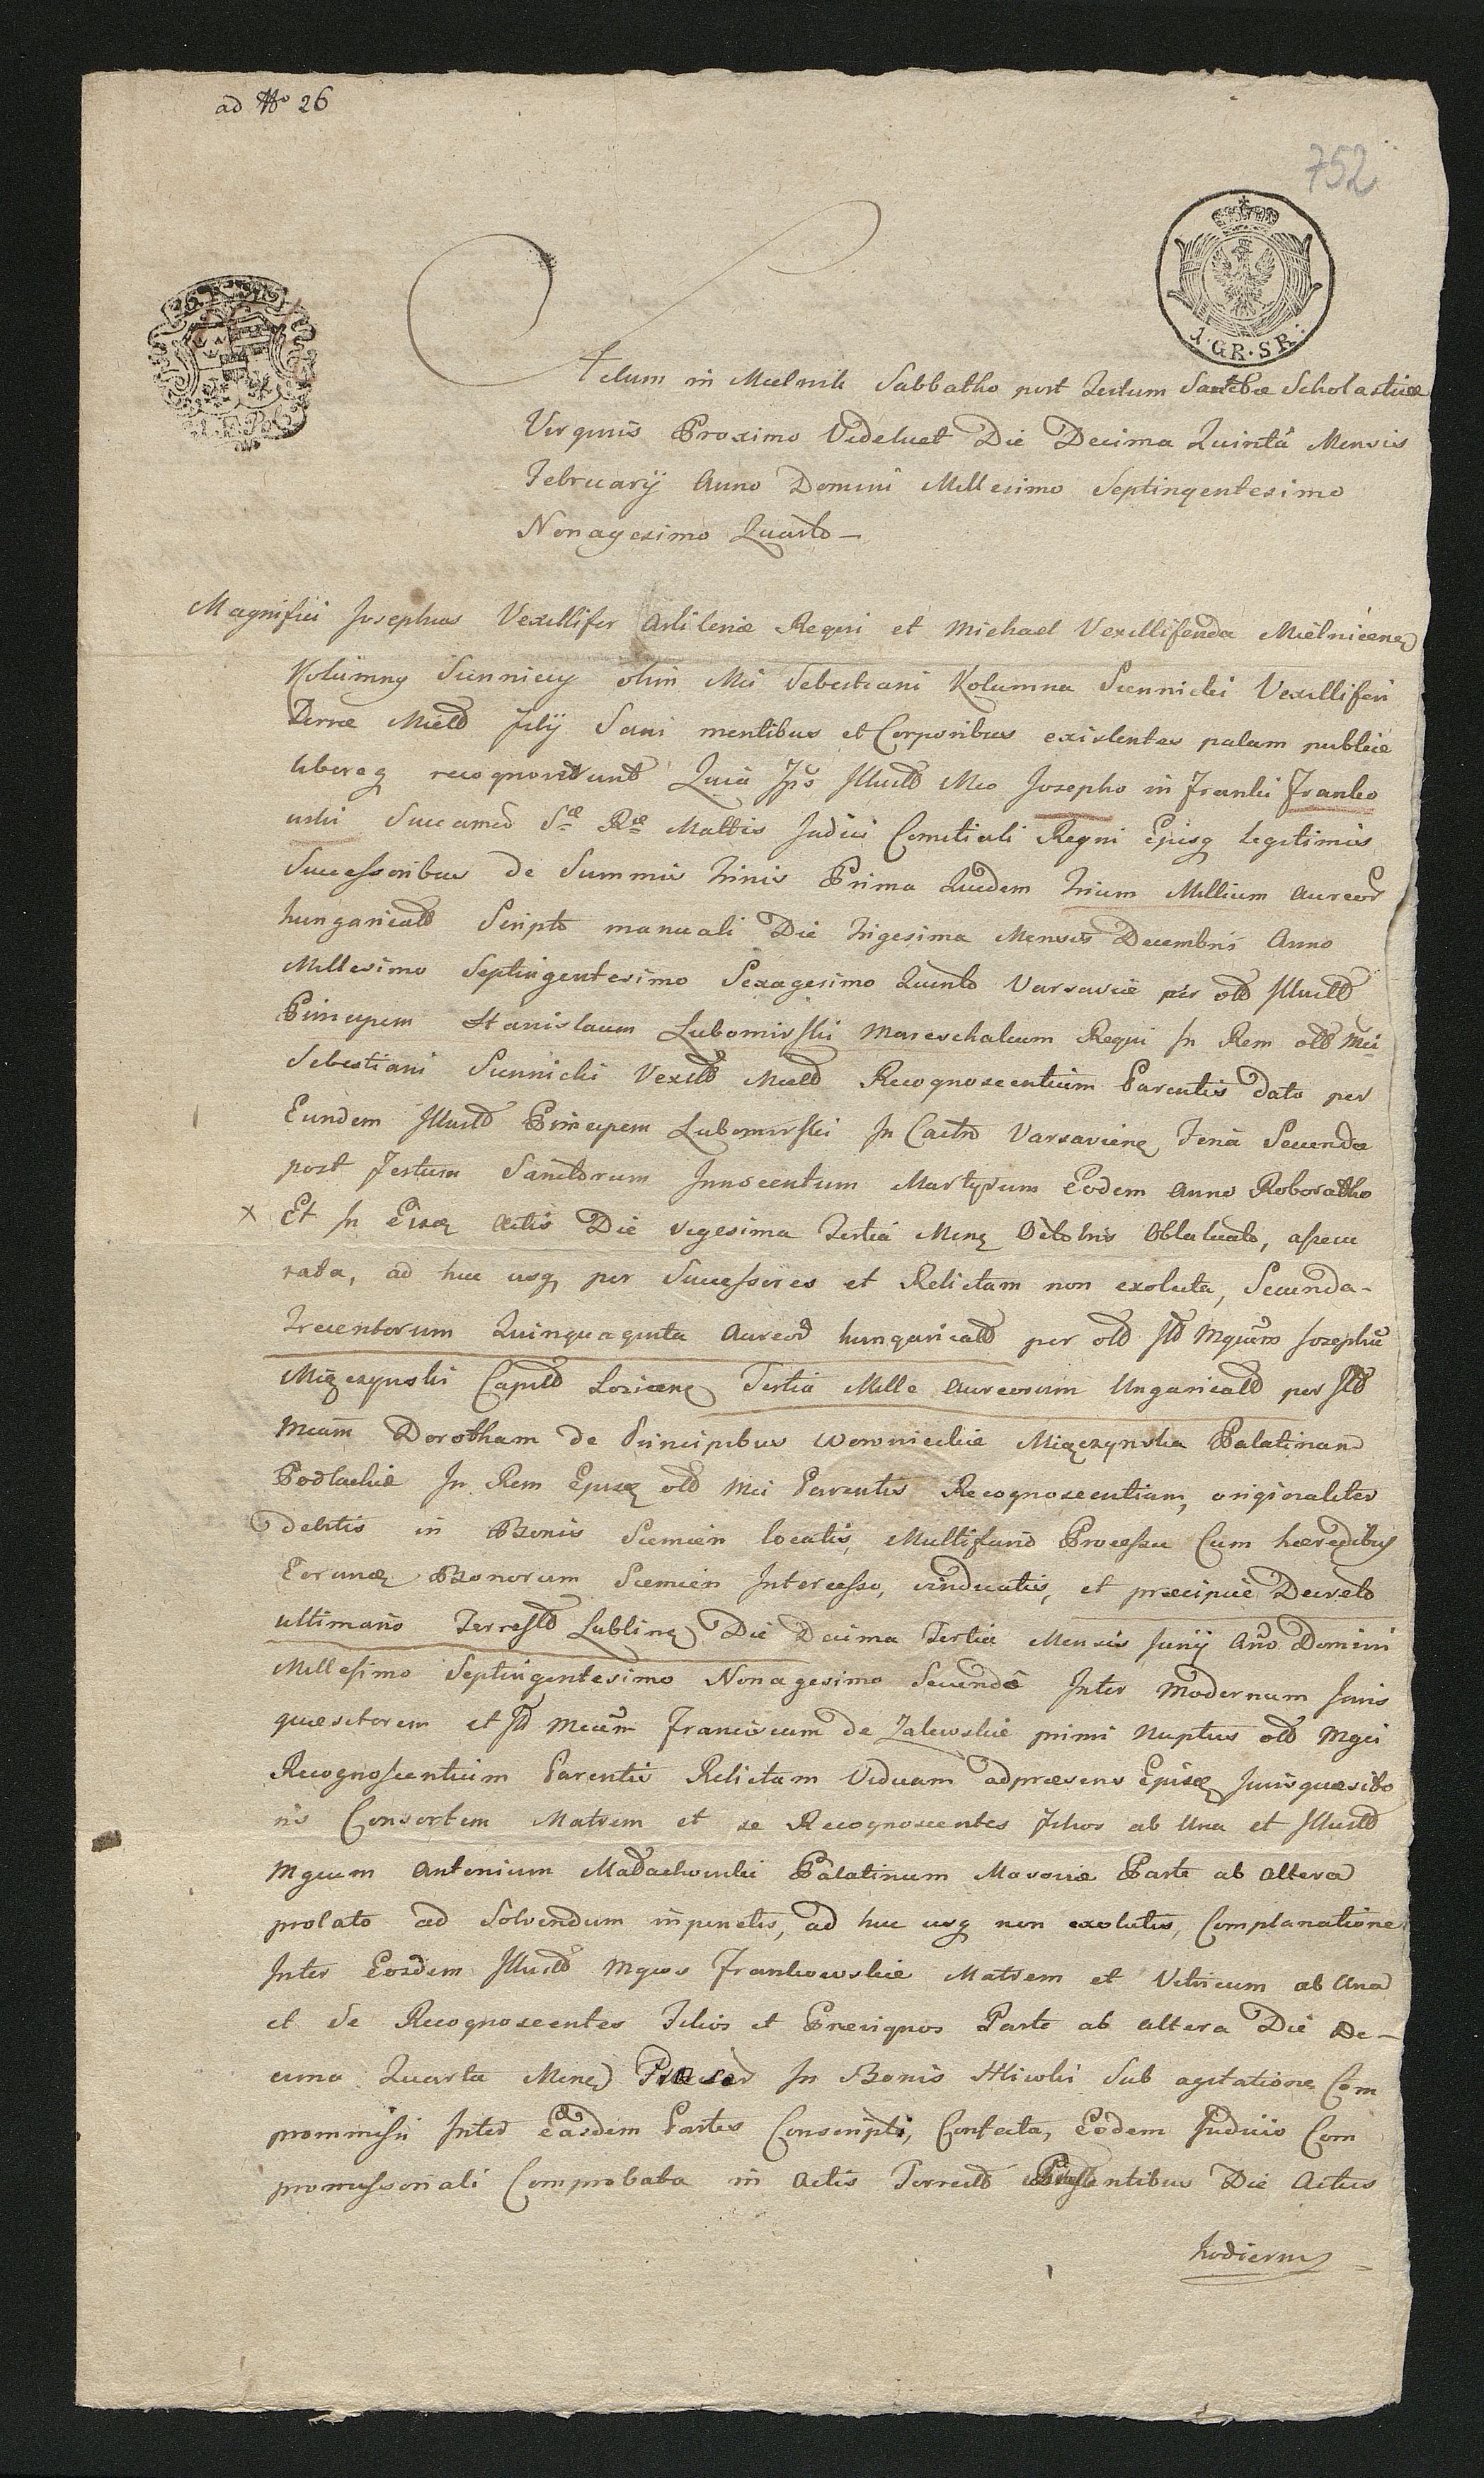 ad No 26
752
1·GR·SR:
Actum in Mielnik Sabbatho post Festum Sanctæ Scholasticæ
Virginis Proximo Videlicet Die Decima Quinta Mensis
Februarij Anno Domini Millesimo Septingentesimo
Nonagesimo Quarto —
Magnifici Josephus Vexillifer Artileriæ Regni et Michael Vexilliferida Mielnicenę
Kolumny Siennicy olim Mci Sebestiani Kolumna Siennicki Vexilliferi
Terræ Miel͠d filij Sani mentibus et Corporibus existentes palam publice
libereq recognoverunt Quia Ipsi Illustr Mco Josepho in Franki Franko
wski Succamer Sæ Ræ Mattis Judici Comitiali Regni Ejusq legitimis
Successoribus de Summis Trinis Prima Quidem Trium Millium Aureor
hungaricald Scripto manuali Die Trigesima Mensis Decembris Anno
Millesimo Septingentesimo Sexagesimo Quinto Varsaviæ per old Illustd
Principem Stanislaum Lubomirski Mareschalcum Regni In Rem old Mci
Sebestiani Siennicki Vexild Mield Recognoscentium Parentis dato per
Eundem Illustd Principem Lubomirski In Castro Varsavienę Feria Secunda
post Festum Sanctorum Innocentum Martyrum Eodem Anno Roborattho
x Et In Eisdę Actis Die vigesima Tertia Menę Octobris Oblatato, assecu
rata, ad huc usq per Successores et Relictam non exoluta, Secunda-
Trecentorum Quinquaginta Aureod hungaricald per old Ild Mgcum Josephum
Miączynski Capitd Losicenę Tertia Mille Aureorum Ungaricald per Ild
Mcam Dorotham de Principibus Woronieckie Miączynska Palatinam
Podlachiæ In Rem Ejusdę old Mci Parentis Recognoscentium, originaliter
debitis in Bonis Siemien locatis, Multifario Processu Cum hæredibus
Eorundę Bonorum Siemien Intercesso, vindicatis, et præcipue Decreto
ultimario Terrestd Lublinę Die Decima Tertia Mensis Junij Anno Domini
Millesimo Septingentesimo Nonagesimo Secundo Inter Modernum Juris
quæsitorem et Ild Mcam Franciscam de Zalewskie primi Nuptus old Mgci
Recognoscentium Parentis Relictam Viduam adpræsens Ejusdę Jurisquæsito
ris Consortem Matrem et se Recognoscentes Filios ab Una et Illustd
Mgcum Antonium Małachowski Palatinum Masoviæ Parte ab Altera
prolato ad Solvendum injunctis, ad huc usq non exolutis, Complanatione
Inter Eosdem Illustd Mgcos Frankowskie Matrem et Vitricum ab Una
et Se Recognoscentes Filios et Prevignos Parte ab altera Die De-
cima Quarta Menę In Bonis Hliwki Sub agitatione Com
promissi Inter Easdem Partes Conscripti, Confecta, Eodem Judicio Com
promissoriali Comprobata in Actis Terrestd Præsentibus Die Actus
hodierni